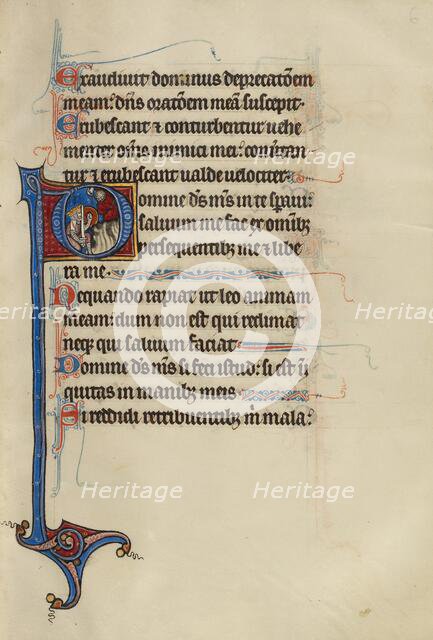 6
Exaudivit dominus deprecatōem
meam: dn̄s oratōem meā suscepit.
Erubescant ⁊ conturbentur vehe
menter om̄s inimici mei: convertan
tur ⁊ erubescant valde velociter.
Domine ds̄ ms̄ in te speravi:
salvum me fac ex omnibꝫ
persequentibꝫ me ⁊ libe
ra me.
Nequando rapiat ut leo animam
meam: dum non est qui redimat
neqꝫ qui salvum faciat.
Domine ds̄ ms̄ si feci istud: si est ī
quitas in manibꝫ meis.
Si reddidi retribuentibꝫ m̄ mala:
Heritage Heritage Heritage
C
Heritage Heritage Heritage